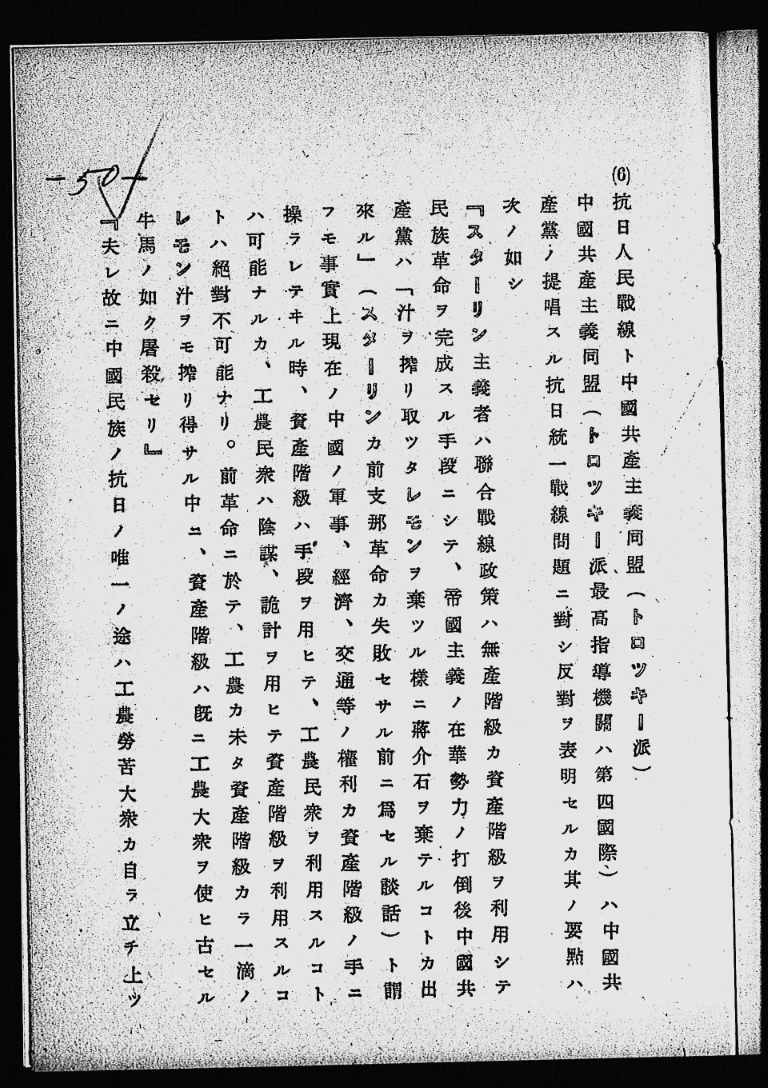 (6)抗日人民戰線ト中國共產主義同盟(トロツキー派)
中國共產主義同盟(トロツキー派最高指導機關ハ第四國際)ハ中國共
產黨ノ提唱スル抗日統一戰線問題ニ對シ反對ヲ表明セルカ其ノ要點ハ
次ノ如シ
『スターリン主義者ハ聯合戰線政策ハ無產階級カ資產階級ヲ利用シテ
民族革命ヲ完成スル手段ニシテ、帝國主義ノ在華勢力ノ打倒後中國共
產黨ハ「汁ヲ搾リ取ツタレモンヲ棄ツル樣ニ蔣介石ヲ棄テルコトカ出
來ル」(スターリンカ前支那革命カ失敗セサル前ニ爲セル談話)ト謂
フモ事實上現在ノ中國ノ軍事、經濟、交通等ノ權利カ資產階級ノ手ニ
操ラレテヰル時、資產階級ハ手段ヲ用ヒテ、工農民衆ヲ利用スルコト
ハ可能ナルカ、工農民衆ハ陰謀、詭計ヲ用ヒテ資產階級ヲ利用スルコ
トハ絕對不可能ナリ。前革命ニ於テ、工農カ未タ資產階級カラ一滴ノ
レモン汁ヲモ搾リ得サル中ニ、資產階級ハ旣ニ工農大衆ヲ使ヒ古セル
牛馬ノ如ク屠殺セリ』
『夫レ故ニ中國民族ノ抗日ノ唯一ノ途ハ工農勞苦大衆カ自ラ立チ上ツ
-50-